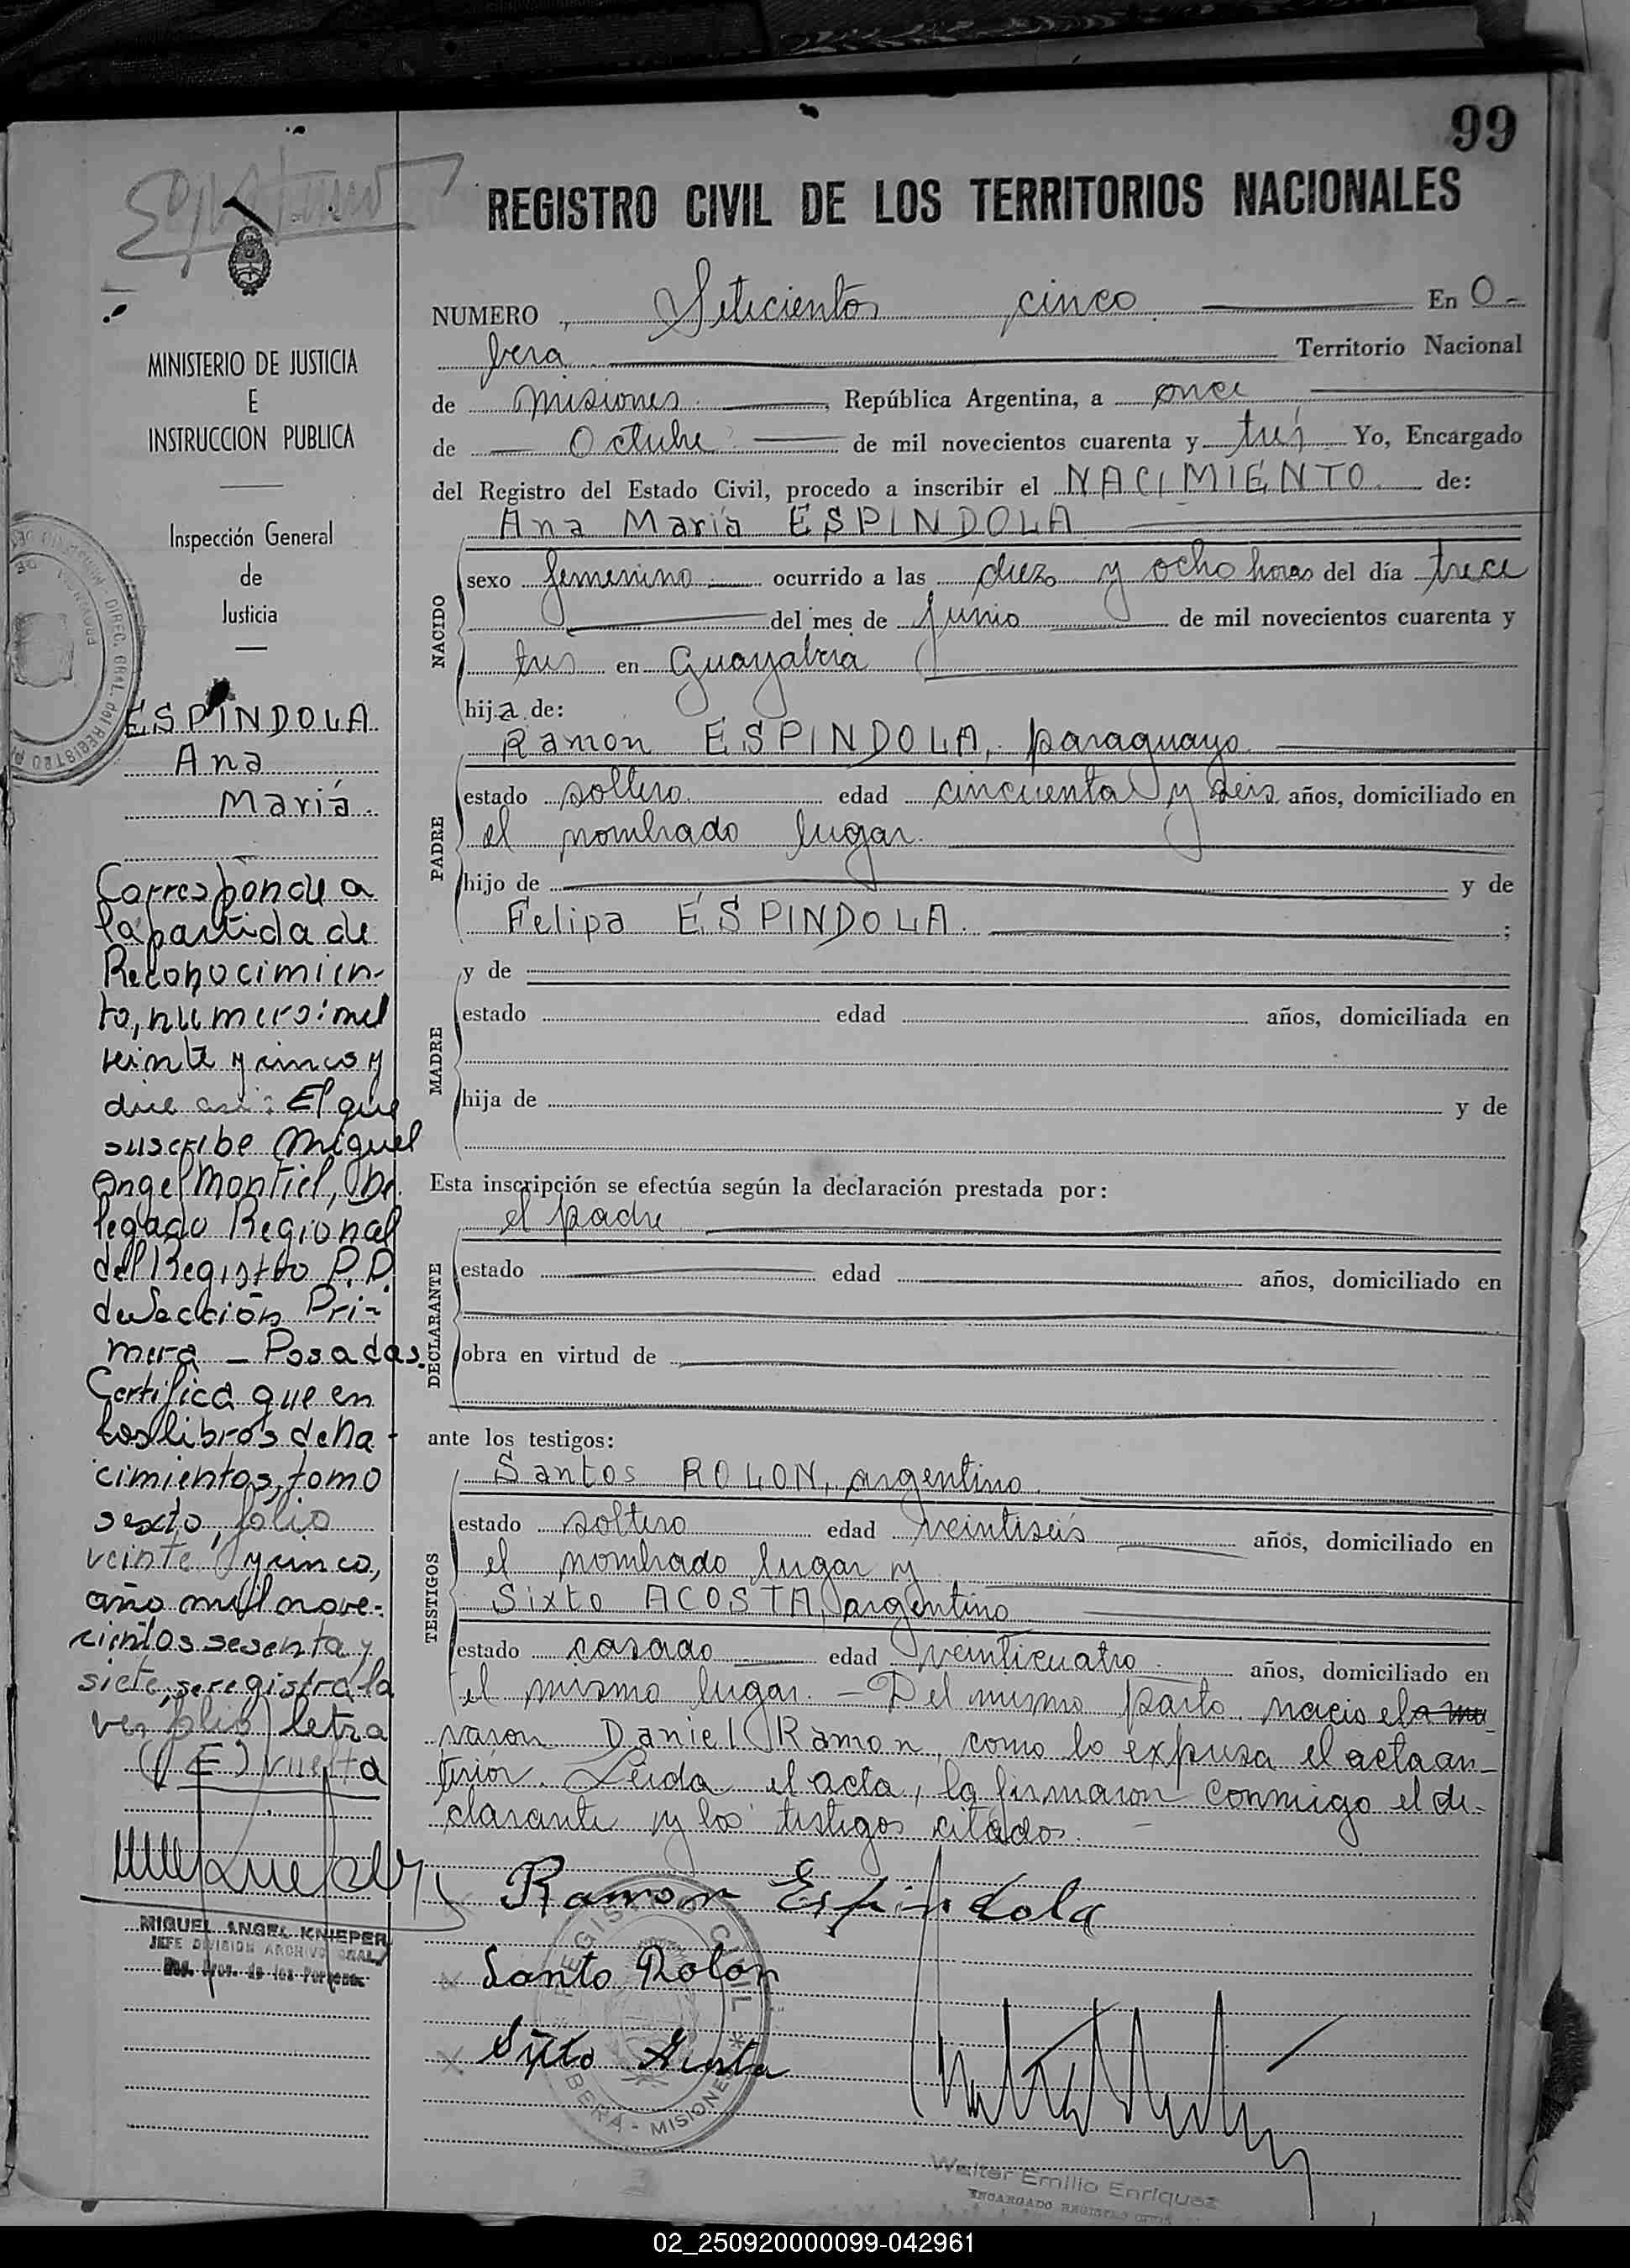 99
REGISTRO CIVIL DE LOS TERRITORIOS NACIONALES
NUMERO Setecientos cinco En O-
bera Territorio Nacional
de Misiones, República Argentina, a once
de Octubre de mil novecientos cuarenta y tres Yo, Encargado
del Registro del Estado Civil, procedo a inscribir el NACIMIENTO de:
Ana Maria ESPINDOLA
NACIDO
sexo femenino ocurrido a las diez y ocho horas del día trece
del mes de junio de mil novecientos cuarenta y
tres en Guayabera
hija de:
PADRE
Ramon ESPINDOLA, paraguayo
estado soltero edad cincuenta y seis años, domiciliado en
el nombrado lugar.
hijo de y de
Felipa ESPINDOLA. ;
MADRE
y de
estado edad años, domiciliada en
hija de y de
Esta inscripción se efectúa según la declaración prestada por:
DECLARANTE
el padre
estado edad años, domiciliado en
obra en virtud de
ante los testigos:
TESTIGOS
Santos ROLON, argentino
estado soltero edad veintiseis años, domiciliado en
el nombrado lugar y
Sixto ACOSTA, argentino
estado casado edad veinticuatro años, domiciliado en
el mismo lugar. - Del mismo parto nacio el
varon Daniel Ramon, como lo expresa el acta an-
terior. Leida el acta, la firmaron conmigo el de-
clarante y los testigos citados. -
Ramon Espindola
Santo Rolon
Sixto Acosta
REGISTRO CIVIL
OBERÁ - MISIONES
Walter Emilio Enriquez
ENCARGADO REGISTRO CIVIL
MINISTERIO DE JUSTICIA
E
INSTRUCCION PUBLICA
Inspección General
de
Justicia
ESPINDOLA
Ana
Maria.
Corresponde a
la partida de
Reconocimien-
to, numero: mil
veinte y cinco y
dice asi: El que
suscribe Miguel
Angel Montiel, De
legado Regional
del Registro P.P.
de Sección Pri-
mera - Posadas.
Certifica que en
los libros de Na-
cimientos, tomo
sexto, folio
veinte y cinco,
año mil nove-
cientos sesenta y
siete, se registra la
ver folio letra
(E) vuelta
MIGUEL ANGEL KNIEPER
JEFE DIVISION ARCHIVO GRAL.
Reg. Prov. de las Personas
02_250920000099-042961